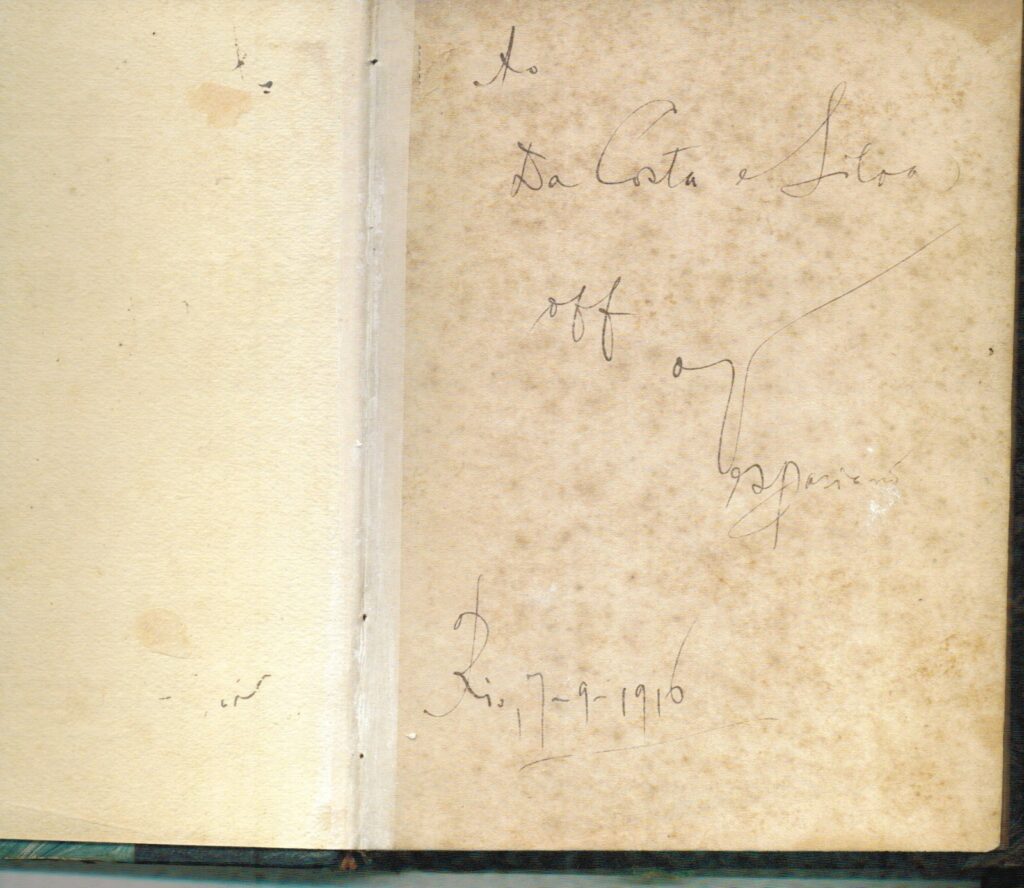 Ao
Da Costa e Silva,
off
o
Rio, 7-9-1916